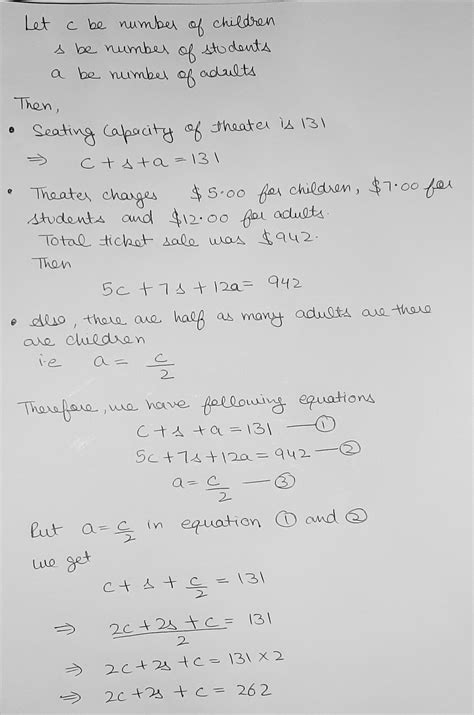 Let c be number of children
s be number of students
a be number of adults
Then,
• Seating Capacity of theater is 131
⇒ c + s + a = 131
• Theater charges $5.00 for children, $7.00 for
students and $12.00 for adults.
Total ticket sale was $942.
Then
5c + 7s + 12a = 942
• Also, there are half as many adults are there
are children
i.e a = c/2
Therefore, we have following equations
c + s + a = 131 — ①
5c + 7s + 12a = 942 — ②
a = c/2 — ③
Put a = c/2 in equation ① and ②
we get
c + s + c/2 = 131
⇒ (2c + 2s + c)/2 = 131
⇒ 2c + 2s + c = 131 × 2
⇒ 2c + 2s + c = 262